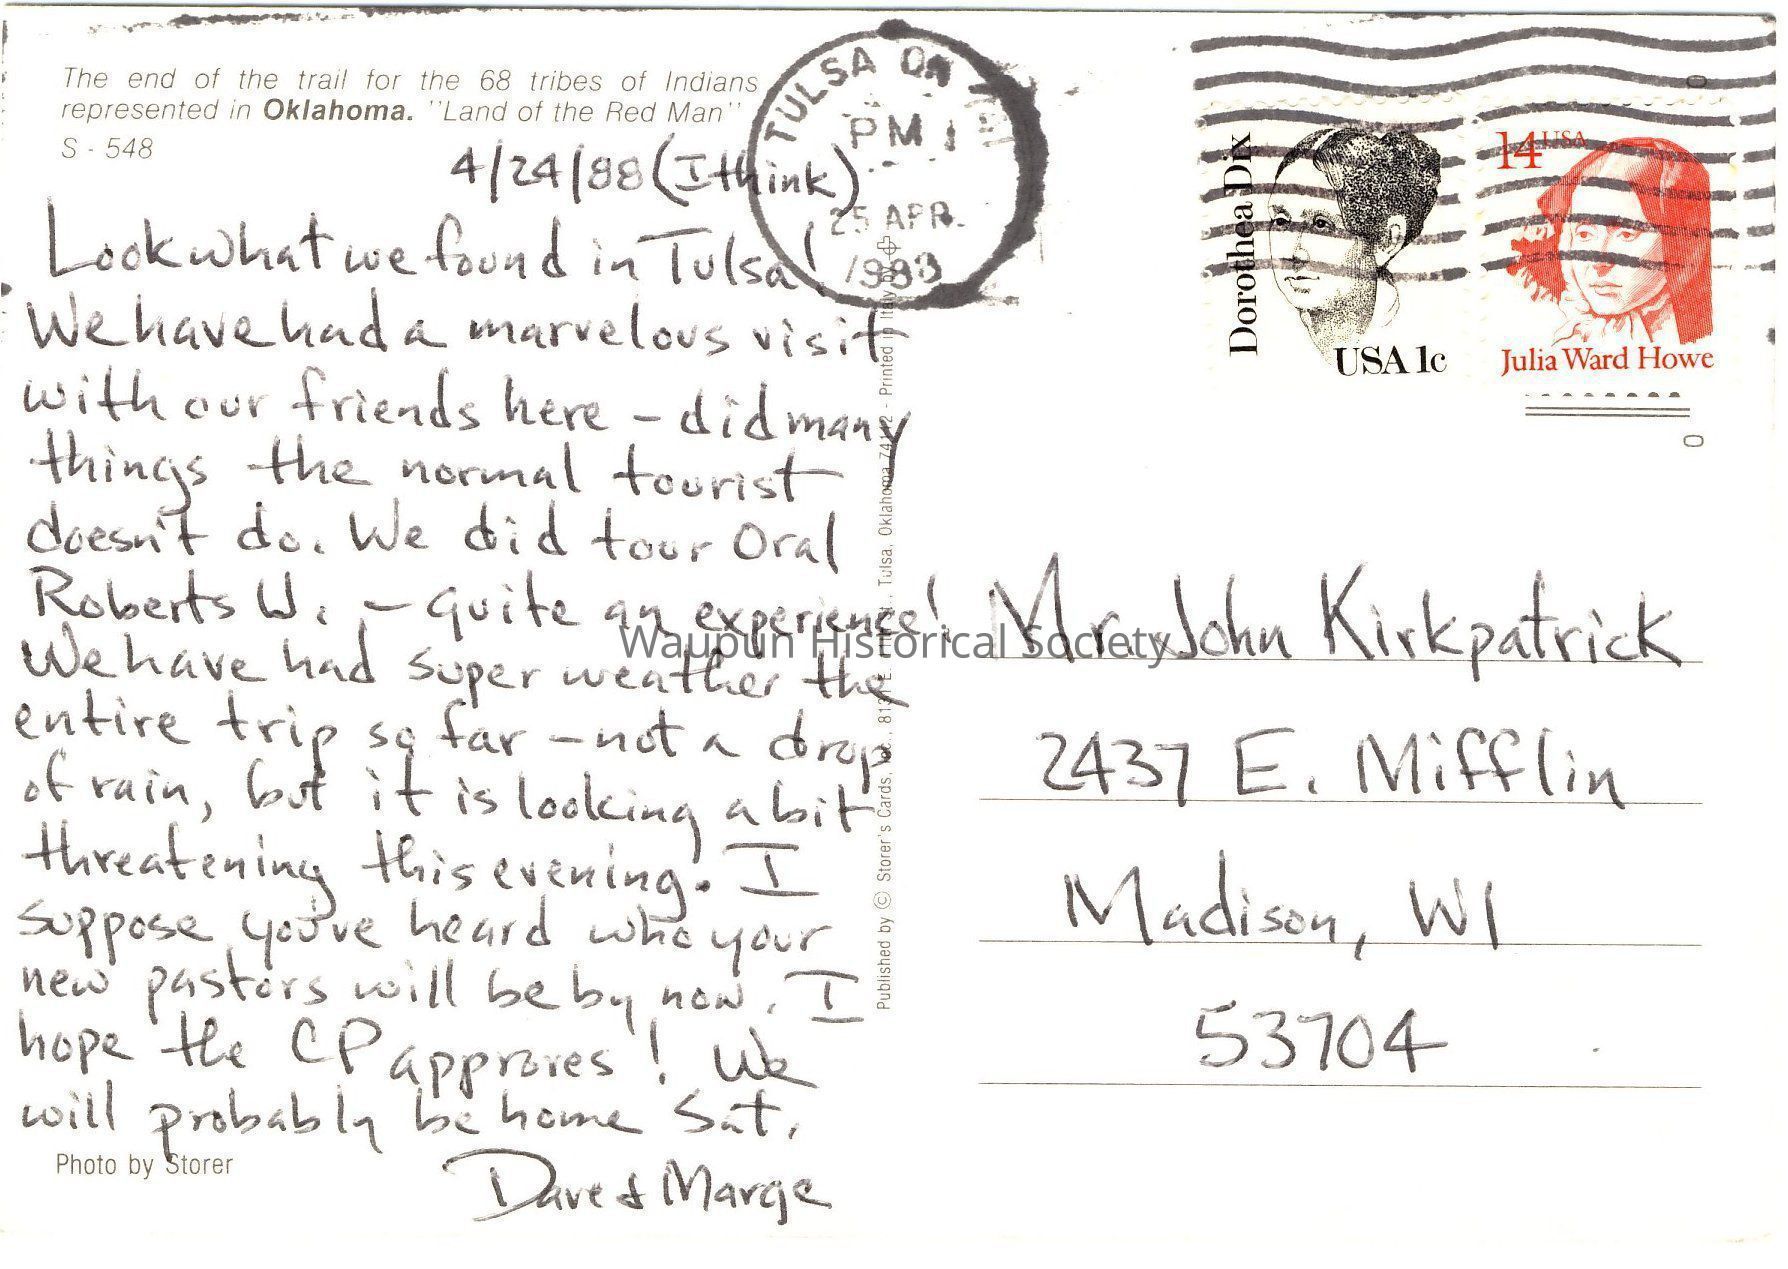 The end of the trail for the 68 tribes of Indians
represented in Oklahoma. "Land of the Red Man"
S - 548
4/24/88 (I think)
Look what we found in Tulsa!
We have had a marvelous visit
with our friends here - did many
things the normal tourist
doesn't do. We did tour Oral
Roberts U. - quite an experience!
We have had super weather the
entire trip so far - not a drop
of rain, but it is looking a bit
threatening this evening. I
suppose you've heard who your
new pastors will be by now. I
hope the CP approves! We
will probably be home Sat.
Dave & Marge
Photo by Storer
Published by © Storer's Cards, Inc., Tulsa, Oklahoma - Printed in Italy by
TULSA OK
PM
25 APR.
1988
Dorothea Dix
USA 1c
14 USA
Julia Ward Howe
Mr. John Kirkpatrick
2437 E. Mifflin
Madison, WI
53704
Waupun Historical Society